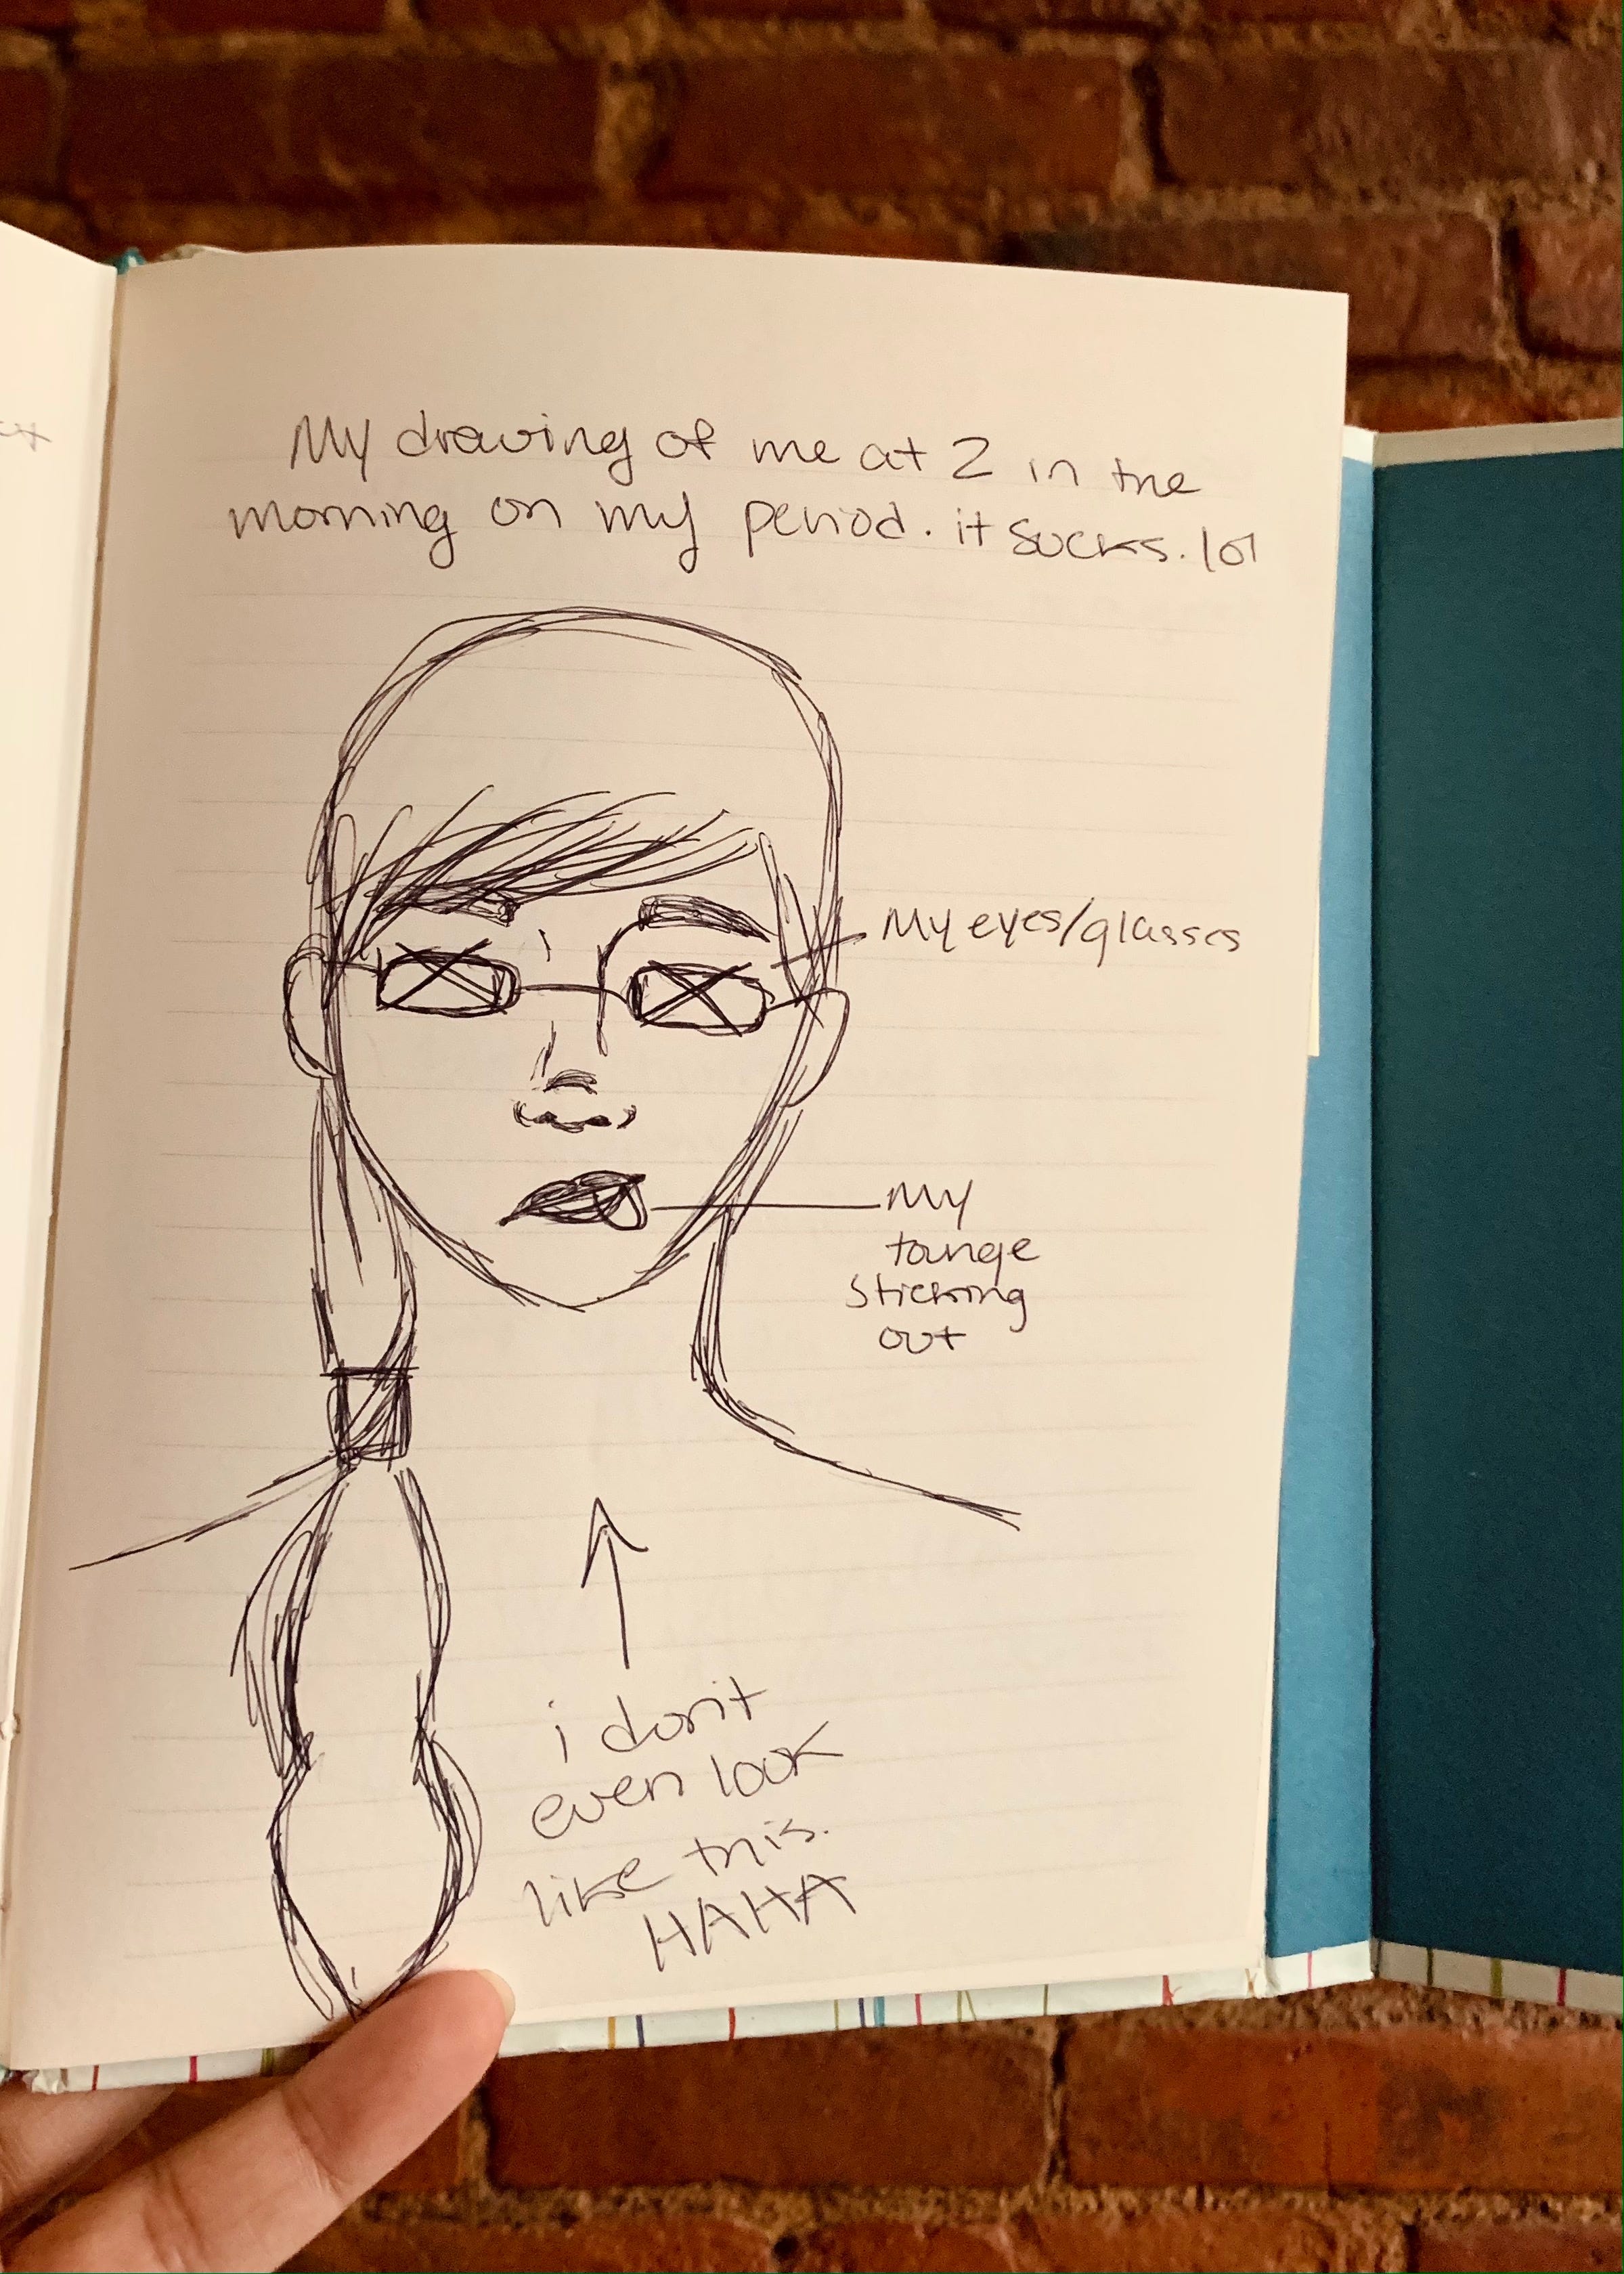 My drawing of me at 2 in the
morning on my period. it sucks. lol
My eyes/glasses
My
tounge
sticking
out
i don't
even look
like this.
HAHA